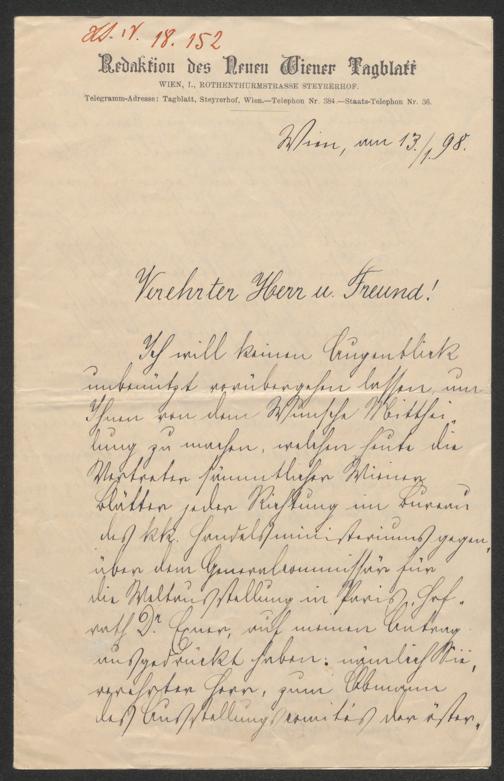 HS. IV. 18. 152
Redaktion des Neuen Wiener Tagblatt
WIEN, I., ROTHENTHURMSTRASSE STEYRERHOF.
Telegramm-Adresse: Tagblatt, Steyrerhof, Wien.—Telephon Nr. 384.—Staats-Telephon Nr. 36.
Wien, am 13./1. 98.
Verehrter Herr u. Freund!
Ich will keinen Augenblick
unbenützt vorübergehen lassen, um
Ihnen von dem Wunsche Mitthei-
lung zu machen, welchen heute die
Vertreter sämmtlicher Wiener
Blätter jeder Richtung im Bureau
des kk. Handelsministeriums gegen-
über dem Generalcommissär für
die Weltausstellung in Paris, Hof-
rath Dr. Exner, auf meinen Antrag
ausgedrückt haben: nämlich Sie,
verehrter Herr, zum Obmann
des Ausstellungscomités der öster-